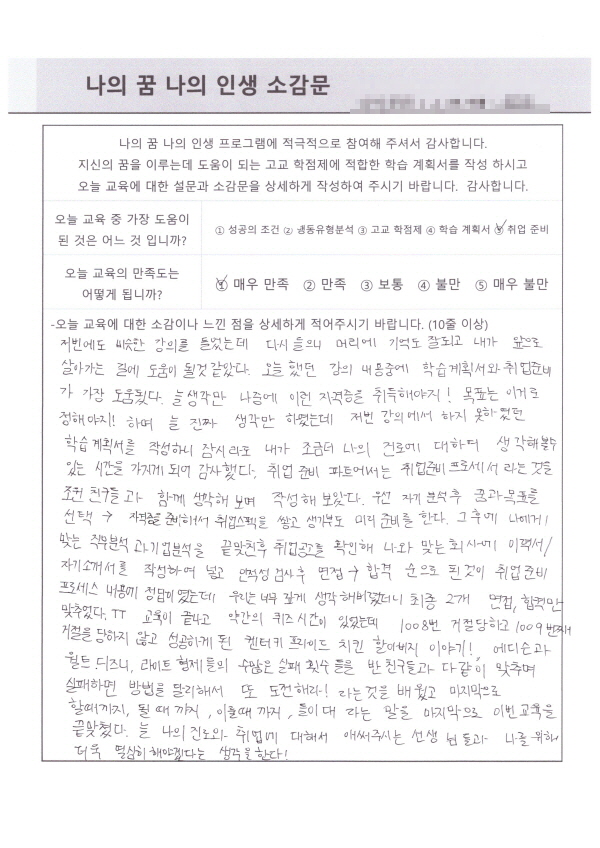 나의 꿈 나의 인생 소감문
나의 꿈 나의 인생 프로그램에 적극적으로 참여해 주셔서 감사합니다.
지신의 꿈을 이루는데 도움이 되는 고교 학점제에 적합한 학습 계획서를 작성 하시고
오늘 교육에 대한 설문과 소감문을 상세하게 작성하여 주시기 바랍니다. 감사합니다.
오늘 교육 중 가장 도움이
된 것은 어느 것 입니까?
① 성공의 조건 ② 행동유형분석 ③ 고교 학점제 ④ 학습 계획서 ⑤ 취업 준비
오늘 교육의 만족도는
어떻게 됩니까?
① 매우 만족 ② 만족 ③ 보통 ④ 불만 ⑤ 매우 불만
-오늘 교육에 대한 소감이나 느낀 점을 상세하게 적어주시기 바랍니다. (10줄 이상)
저번에도 비슷한 강의를 들었는데 다시 들으니 머리에 기억도 잘되고 내가 앞으로
살아가는 길에 도움이 될것 같았다. 오늘 했던 강의 내용중에 학습계획서와 취업준비
가 가장 도움됐다. 늘 생각만 나중에 이런 자격증을 취득해야지! 목표는 이거로
정해야지! 하며 늘 진짜 생각만 하였는데 저번 강의에서 하지 못하였던
학습계획서를 작성하니 잠시라도 내가 조금더 나의 진로에 대하여 생각해볼수
있는 시간을 가지게 되어 감사했다. 취업 준비 파트에서는 취업준비 프로세서 라는것을
조원 친구들과 함께 생각해 보며 작성해 보았다. 우선 자기 분석후 꿈과 목표를
선택 → 자격증을 준비해서 취업스펙을 쌓고 생기부도 미리 준비를 한다. 그후에 나에게
맞는 직무분석과 기업분석을 끝맞친후 취업공고를 확인해 나와 맞는 회사에 이력서/
자기소개서를 작성하여 넣고 인적성 검사후 면접 → 합격 순으로 된것이 취업준비
프로세스 내용에 정답이였는데 우리는 너무 깊게 생각해버렸더니 최종 2개 면접, 합격만
맞추었다. TT 교육이 끝나고 약간의 퀴즈시간이 있었는데 1008번 거절당하고 1009번째에
거절을 당하지 않고 성공하게 된 켄터키 프라이드 치킨 할아버지 이야기!, 에디슨과
월트 디즈니, 라이트 형제들의 수많은 실패 횟수들을 반 친구들과 다같이 맞추며
실패하면 방법을 달리해서 또 도전해라! 라는것을 배웠고 마지막으로
할때까지, 될 때 까지, 이룰때 까지, 들이대 라는 말을 마지막으로 이번교육을
끝맞쳤다. 늘 나의 진로와 취업에 대해서 애써주시는 선생님들과 나를 위해
더욱 열심히 해야겠다는 생각을한다!